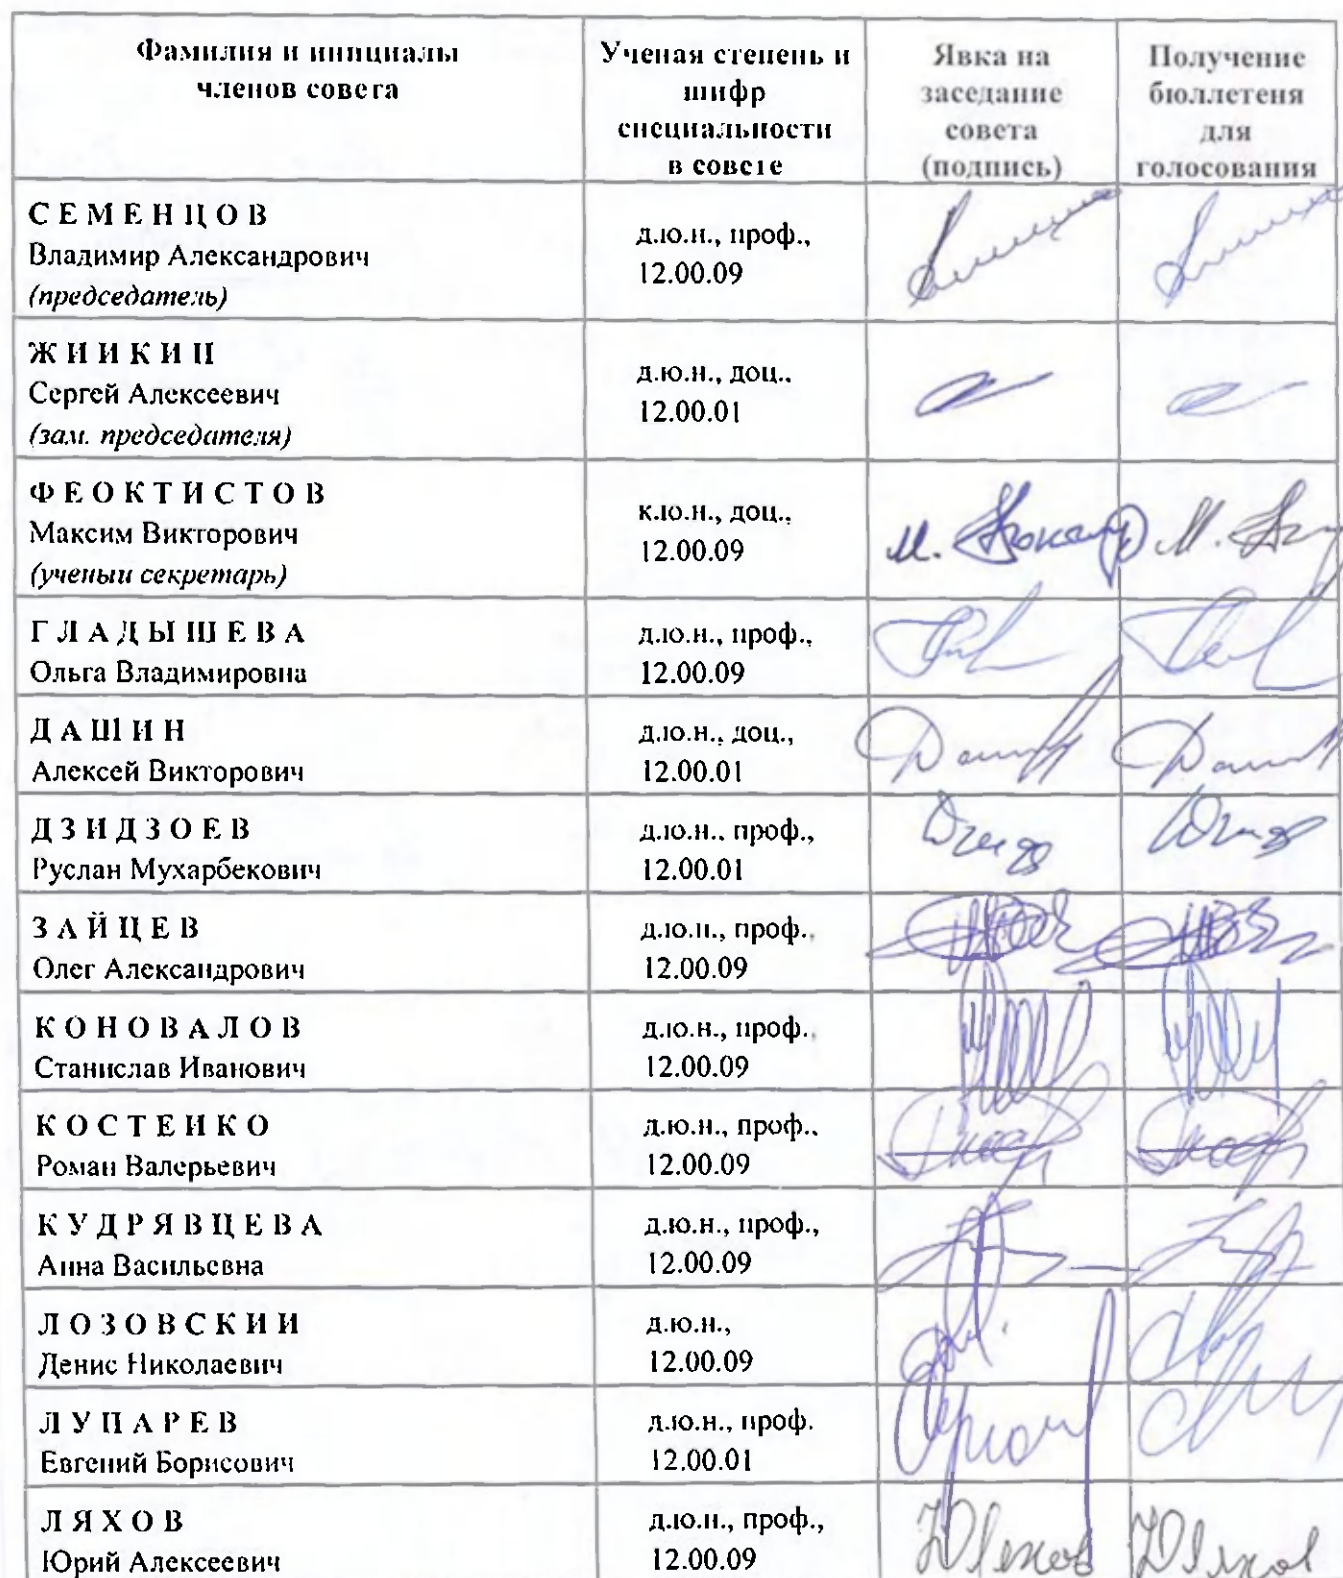 Фамилия и инициалы
членов совета
Ученая степень и
шифр
специальности
в совете
Явка на
заседание
совета
(подпись)
Получение
бюллетеня
для
голосования
СЕМЕНЦОВ
Владимир Александрович
(председатель)
д.ю.н., проф.,
12.00.09
ЖИНКИН
Сергей Алексеевич
(зам. председателя)
д.ю.н., доц.,
12.00.01
ФЕОКТИСТОВ
Максим Викторович
(ученый секретарь)
к.ю.н., доц.,
12.00.09
ГЛАДЫШЕВА
Ольга Владимировна
д.ю.н., проф.,
12.00.09
ДАШИН
Алексей Викторович
д.ю.н., доц.,
12.00.01
ДЗИДЗОЕВ
Руслан Мухарбекович
д.ю.н., проф.,
12.00.01
ЗАЙЦЕВ
Олег Александрович
д.ю.н., проф.,
12.00.09
КОНОВАЛОВ
Станислав Иванович
д.ю.н., проф.,
12.00.09
КОСТЕНКО
Роман Валерьевич
д.ю.н., проф.,
12.00.09
КУДРЯВЦЕВА
Анна Васильевна
д.ю.н., проф.,
12.00.09
ЛОЗОВСКИЙ
Денис Николаевич
д.ю.н.,
12.00.09
ЛУПАРЕВ
Евгений Борисович
д.ю.н., проф.
12.00.01
ЛЯХОВ
Юрий Алексеевич
д.ю.н., проф.,
12.00.09